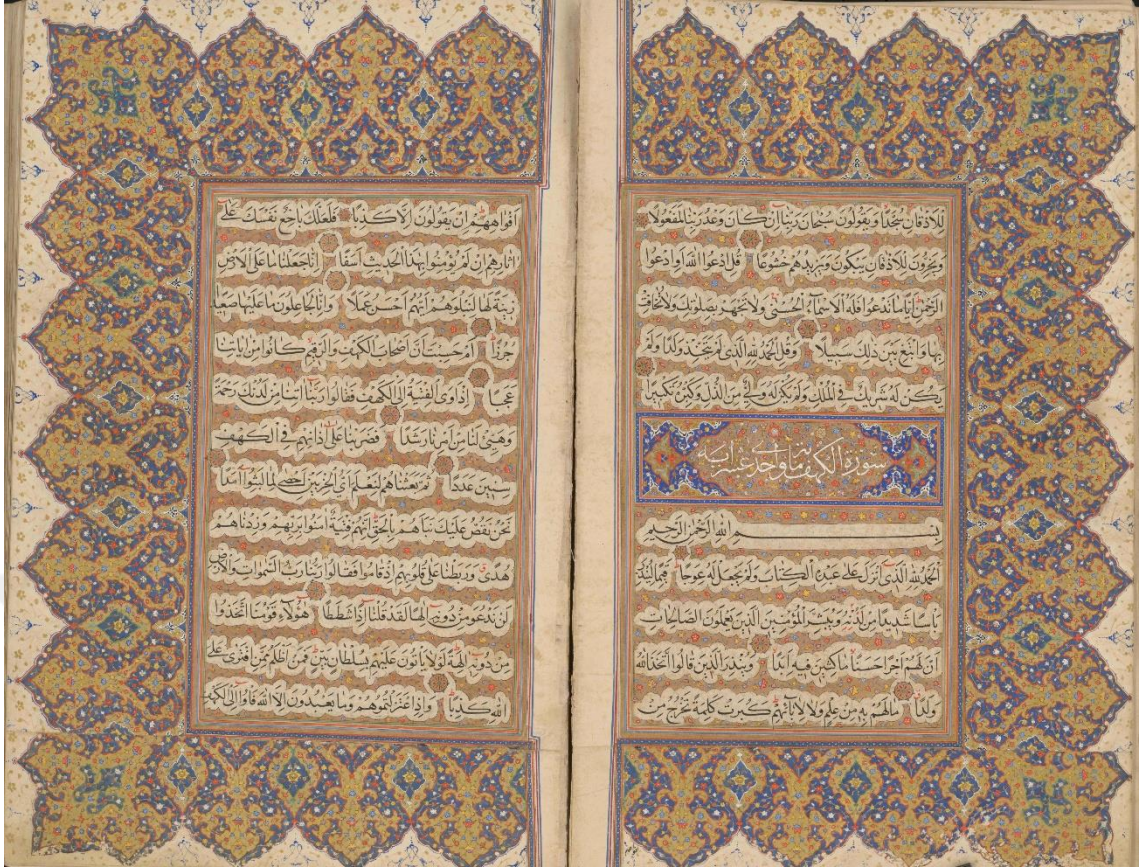 للاذقان سجدا ويقولون سبحان ربنا ان كان وعد ربنا لمفعولا
ويخرون للاذقان يبكون ويزيدهم خشوعا قل ادعوا الله او ادعوا
الرحمن ايا ما تدعوا فله الاسماء الحسنى ولا تجهر بصلوتك ولا تخافت
بها وابتغ بين ذلك سبيلا وقل الحمد لله الذى لم يتخذ ولدا ولم
يكن له شريك فى الملك ولم يكن له ولى من الذل وكبره تكبيرا
سورة الكهف مائة واحدى عشر اية
بسم الله الرحمن الرحيم
الحمد لله الذى انزل على عبده الكتاب ولم يجعل له عوجا قيما لينذر
باسا شديدا من لدنه ويبشر المؤمنين الذين يعملون الصالحات
ان لهم اجرا حسنا ماكثين فيه ابدا وينذر الذين قالوا اتخذ الله
ولدا ما لهم به من علم ولا لابائهم كبرت كلمة تخرج من
افواههم ان يقولون الا كذبا فلعلك باخع نفسك على
اثارهم ان لم يؤمنوا بهذا الحديث اسفا انا جعلنا ما على الارض
زينة لها لنبلوهم ايهم احسن عملا وانا لجاعلون ما عليها صعيدا
جرزا ام حسبت ان اصحاب الكهف والرقيم كانوا من اياتنا
عجبا اذ اوى الفتية الى الكهف فقالوا ربنا اتنا من لدنك رحمة
وهيئ لنا من امرنا رشدا فضربنا على اذانهم فى الكهف
سنين عددا ثم بعثناهم لنعلم اى الحزبين احصى لما لبثوا امدا
نحن نقص عليك نباهم بالحق انهم فتية امنوا بربهم وزدناهم
هدى وربطنا على قلوبهم اذ قاموا فقالوا ربنا رب السموات والارض
لن ندعو من دونه الها لقد قلنا اذا شططا هؤلاء قومنا اتخذوا
من دونه الهة لولا ياتون عليهم بسلطان بين فمن اظلم ممن افترى على
الله كذبا واذ اعتزلتموهم وما يعبدون الا الله فاوا الى الكهف